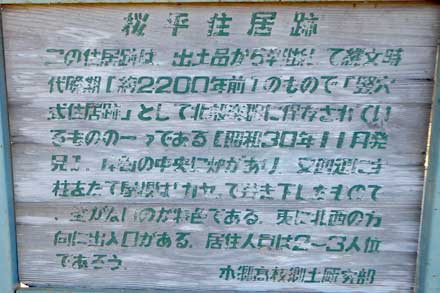 桜平住居跡
この住居跡は、出土品から判断して縄文時
代晩期「約2200年前」のもので「竪穴
式住居跡」として北 に保存されてい
るものの一つである【昭和30年11月発
見】、 の中央に炉があり、 に
柱をたて屋根は「カヤ」で葺き下しをもので
、 のが特色である。更に北西の方
向に出入口がある。居住人口は2~3人位
であろう。
水 高校郷土研究部